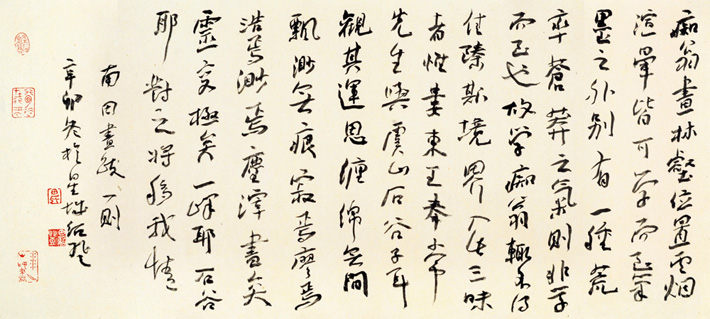 痴翁畫林壑位置雲烟
渲暈皆可學而至筆
墨之外別有一種荒
率蒼莽之氣則非學
而至也故學痴翁輒不得
佳臻斯境界入此三昧
者惟婁東王奉常
先生與虞山石谷子耳
觀其運思纏綿無間
飄渺無痕寂焉寥焉
浩焉渺焉塵滓盡矣
靈變極矣一峰耶石谷
耶對之將移我情
南田畫跋一則
辛卯冬於星城